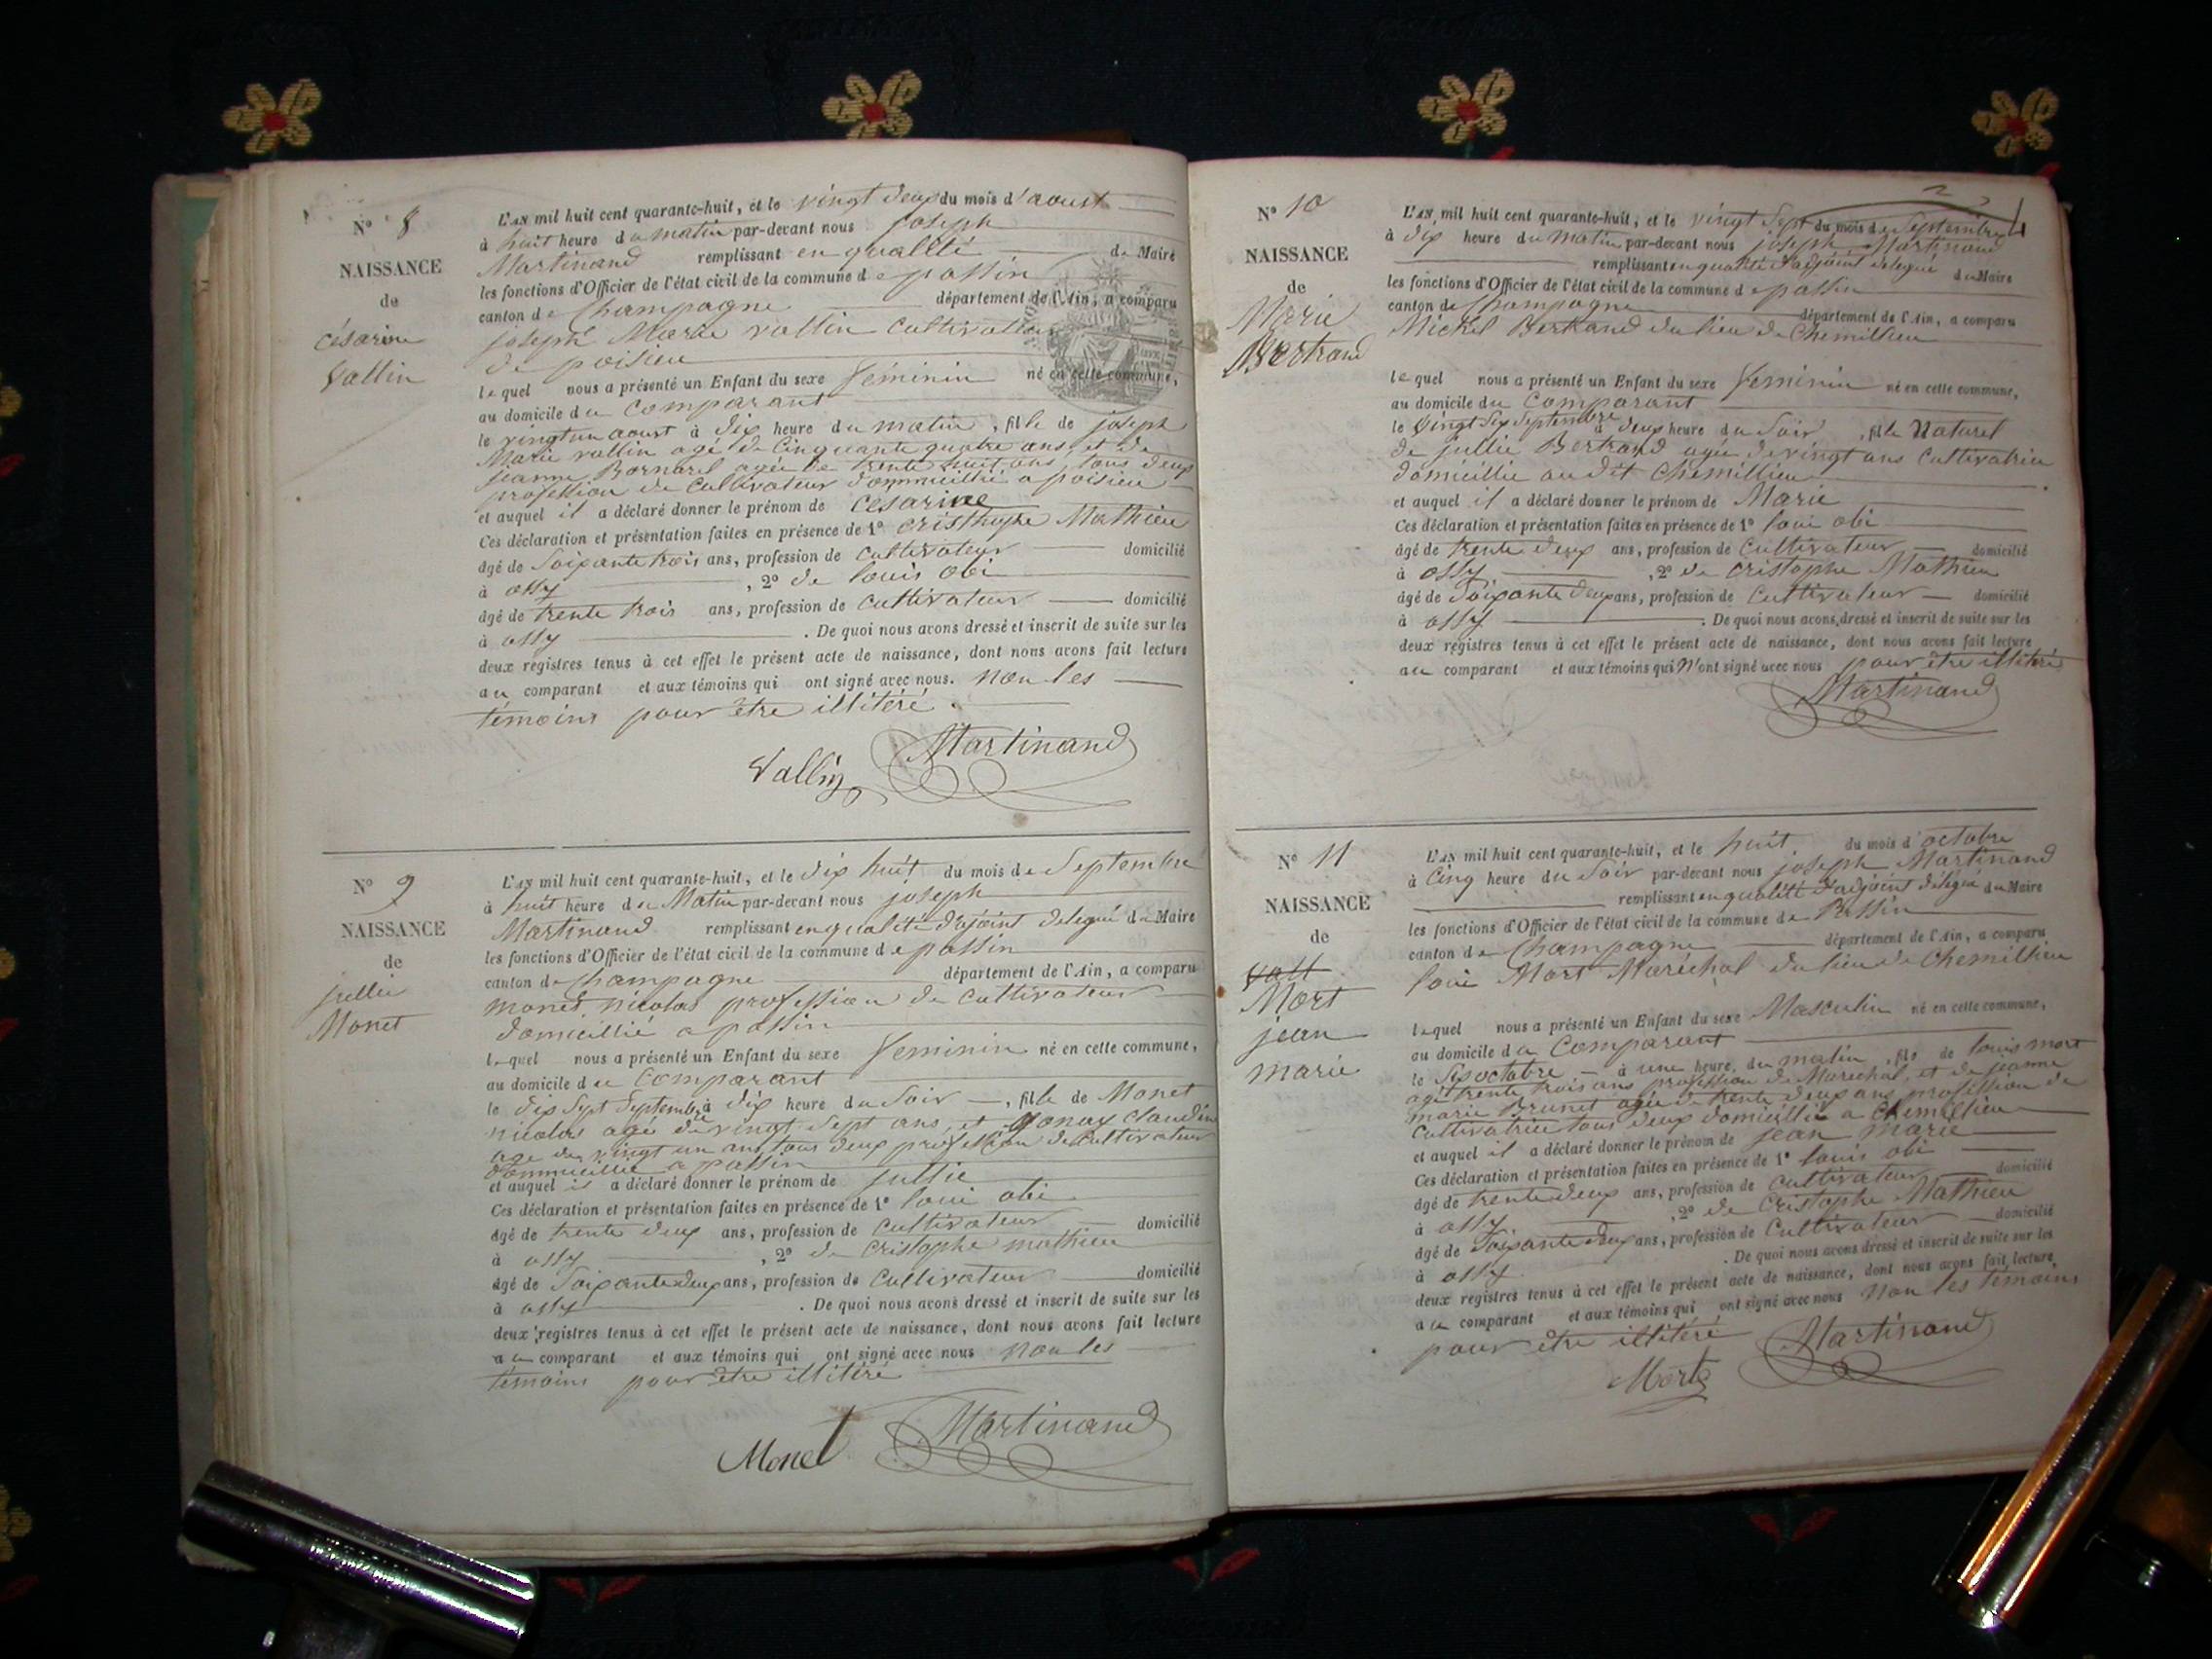 N° 8
NAISSANCE
de
césarine
Vallin
L'AN mil huit cent quarante-huit, et le vingt deux du mois d'aoust
à huit heure du matin par-devant nous joseph
Martinand remplissant en quallité de Maire
les fonctions d'Officier de l'état civil de la commune de passin
canton de Champagne département de l'Ain, a comparu
joseph Marie vallin Cultivateur
de poisieu
lequel nous a présenté un Enfant du sexe féminin né en cette commune,
au domicile du Comparant
le vingt un aoust à dix heure du matin, fille de joseph
Marie vallin agé de Cinquante quatre ans et de
jeanne Bornarel agée de trente huit ans, tous deux
profession de Cultivateur dommeillié a poisieu
et auquel il a déclaré donner le prénom de Césarine
Ces déclaration et présentation faites en présence de 1° Cristhophe Mathieu
âgé de Soixante trois ans, profession de Cultivateur domicilié
à ossy , 2° de louis obi
âgé de trente trois ans, profession de Cultivateur domicilié
à ossy . De quoi nous avons dressé et inscrit de suite sur les
deux registres tenus à cet effet le présent acte de naissance, dont nous avons fait lecture
au comparant et aux témoins qui ont signé avec nous. Non les
témoins pour être illitéré.
Vallin Martinand
N° 9
NAISSANCE
de
jullie
Monet
L'AN mil huit cent quarante-huit, et le dix huit du mois de Septembre
à huit heure du Matin par-devant nous joseph
Martinand remplissant en qualité d'ajoint delegué du Maire
les fonctions d'Officier de l'état civil de la commune de passin
canton de Champagne département de l'Ain, a comparu
monet nicolas profession de Cultivateur
domicillié a passin
lequel nous a présenté un Enfant du sexe feminin né en cette commune,
au domicile du Comparant
le dix Sept Septembre à dix heure du Soir, fille de Monet
nicolas agé de vingt Sept ans, et Claudine
age de vingt un ans tous deux profession de Cultivateur
dommicillié a passin
et auquel il a déclaré donner le prénom de jullie
Ces déclaration et présentation faites en présence de 1° loui obi
âgé de trente deux ans, profession de Cultivateur domicilié
à ossy , 2° de Cristophe mathieu
âgé de Soixante deux ans, profession de Cultivateur domicilié
à ossy . De quoi nous avons dressé et inscrit de suite sur les
deux registres tenus à cet effet le présent acte de naissance, dont nous avons fait lecture
au comparant et aux témoins qui ont signé avec nous Non les
témoins pour être illitéré
Monet Martinand
N° 10
NAISSANCE
de
Marie
Bertrand
L'AN mil huit cent quarante-huit, et le vingt Sept du mois de Septembre
à dix heure du Matin par-devant nous joseph Martinand
remplissant en qualité d'adjoint délegué du Maire
les fonctions d'Officier de l'état civil de la commune de passin
canton de Champagne département de l'Ain, a comparu
Mickel Bertrand du lieu de Chemillieu
lequel nous a présenté un Enfant du sexe feminin né en cette commune,
au domicile du Comparant
le vingt Six Septembre à deux heure du Soir, fille Naturel
de jullie Bertrand agée de vingt ans Cultivatrice
domicillie au dit Chemillieu
et auquel il a déclaré donner le prénom de Marie
Ces déclaration et présentation faites en présence de 1° loui obi
âgé de trente deux ans, profession de Cultivateur domicilié
à ossy , 2° de Cristophe Mathieu
âgé de Soixante deux ans, profession de Cultivateur domicilié
à ossy . De quoi nous avons dressé et inscrit de suite sur les
deux registres tenus à cet effet le présent acte de naissance, dont nous avons fait lecture
au comparant et aux témoins qui N'ont signé avec nous pour être illitéré
Martinand
N° 11
NAISSANCE
de
Mort
jean
marie
L'AN mil huit cent quarante-huit, et le huit du mois d'octobre
à Cinq heure du Soir par-devant nous joseph Martinand
remplissant en qualité d'adjoint délégué du Maire
les fonctions d'Officier de l'état civil de la commune de Passin
canton de Champagne département de l'Ain, a comparu
loui Mort Maréchal du lieu de Chemillieu
lequel nous a présenté un Enfant du sexe Masculin né en cette commune,
au domicile du Comparant
le Six octobre à une heure du matin, fils de louis mort
agé trente trois ans profession de Marechal, et de jeanne
marie Brunet agée de trente deux ans profession de
Cultivatrice tous deux domicillié a Chemillieu
et auquel il a déclaré donner le prénom de jean marie
Ces déclaration et présentation faites en présence de 1° louis obi
âgé de trente deux ans, profession de Cultivateur domicilié
à ossy. , 2° de Cristophe Mathieu
âgé de Soixante deux ans, profession de Cultivateur domicilié
à ossy . De quoi nous avons dressé et inscrit de suite sur les
deux registres tenus à cet effet le présent acte de naissance, dont nous avons fait lecture
au comparant et aux témoins qui ont signé avec nous Non les témoins
pour être illitéré Martinand
Mort